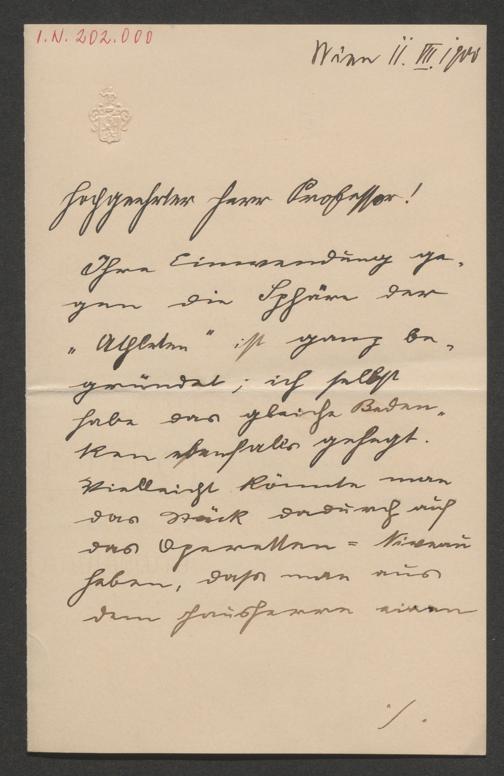 I.N. 202.000
Wien 11. VII. 1900
Hochgeehrter Herr Professor!
Ihre Einwendung ge-
gen die Sphäre der
„Athleten" ist ganz be-
gründet; ich selbst
habe das gleiche Beden-
ken ebenfalls gehegt.
Vielleicht könnte man
das Stück dadurch auf
das Operetten=Niveau
heben, dass man aus
dem Hausherrn einen
./.